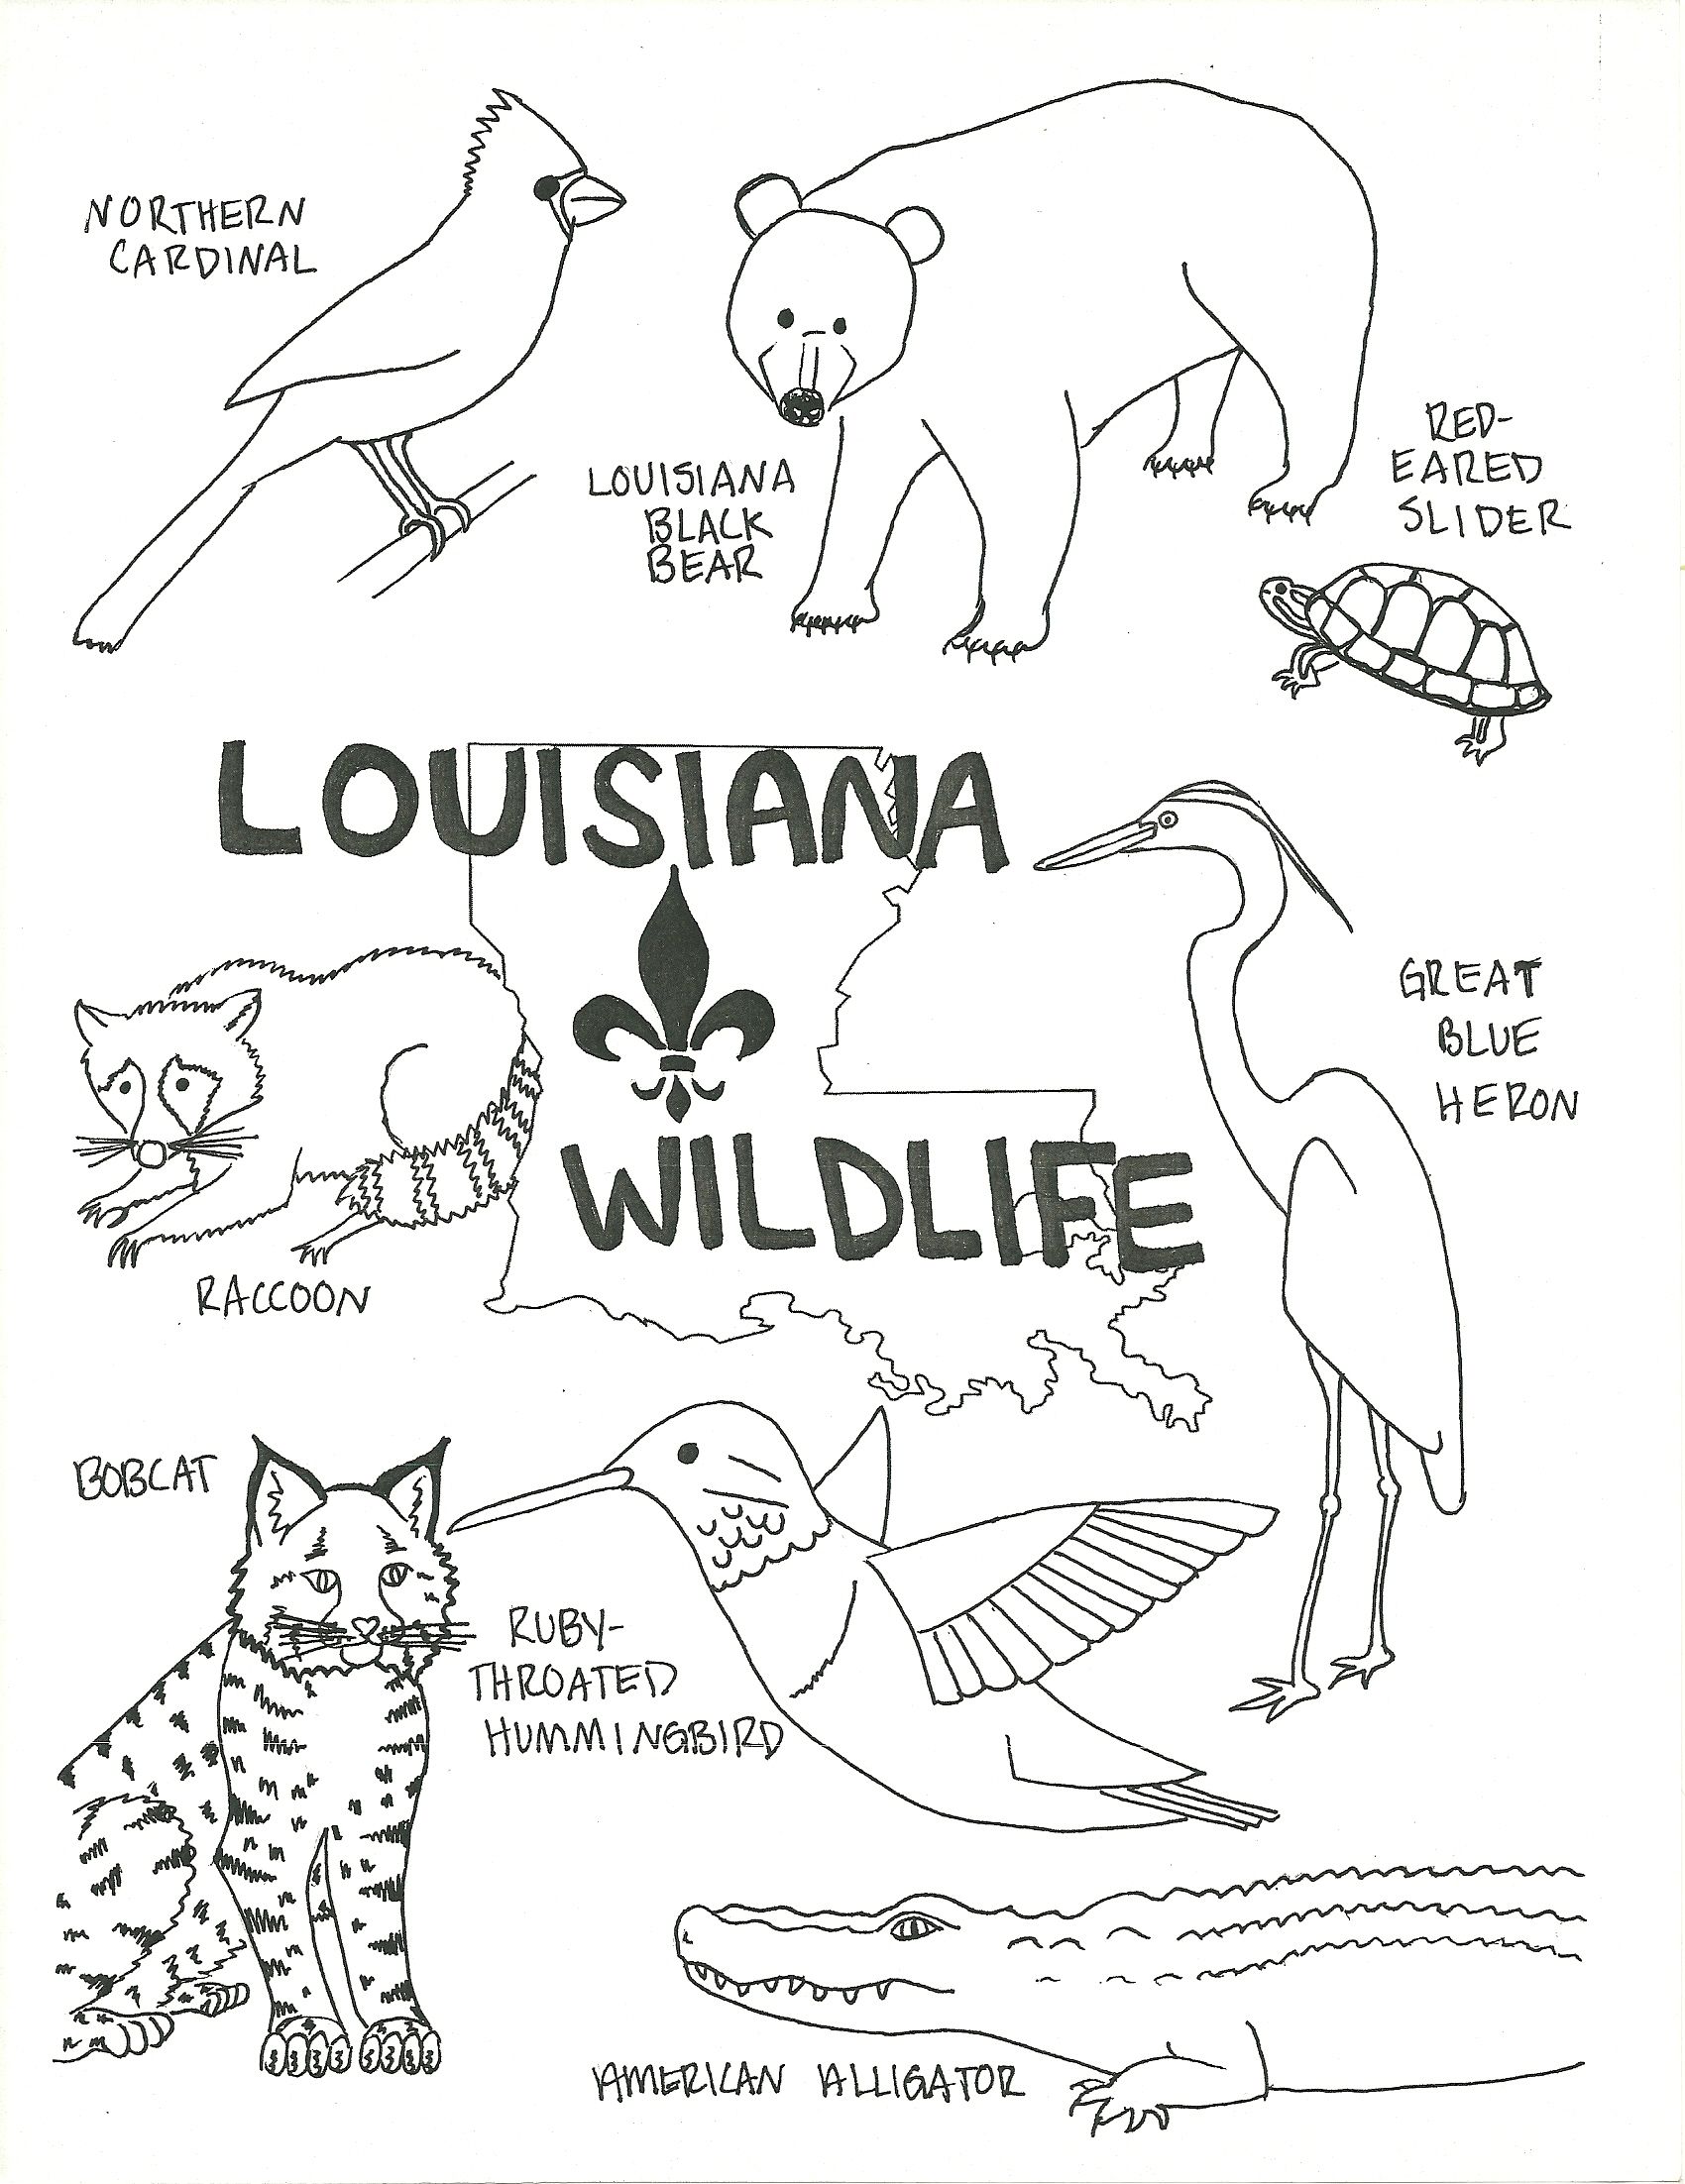 NORTHERN
CARDINAL
LOUISIANA
BLACK
BEAR
RED-
EARED
SLIDER
LOUISIANA
WILDLIFE
GREAT
BLUE
HERON
RACCOON
BOBCAT
RUBY-
THROATED
HUMMINGBIRD
AMERICAN ALLIGATOR